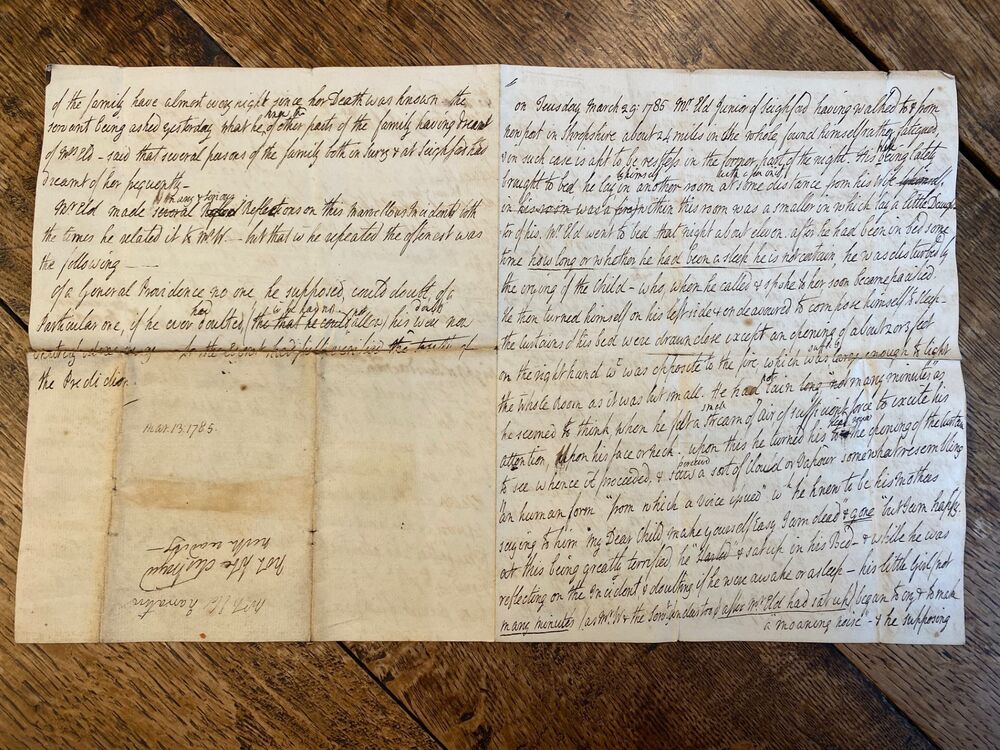 of the family have almost every night since her Death was known the
servant being asked yesterday what he knew of other parts of the family having dreamt
of Mrs Eld - said that several persons of the family both in Surry & at Seighford had
dreamt of her frequently -
Mr Eld made many & serious several Reflections on this marvellous Incident both
the times he related it to Mr W. - but that wh he repeated the oftenest was
the following -
Of a General Providence no one he supposed, could doubt, of a
Particular one, if he ever doubted (his doubts were now
the Prediction
mar. 13. 1785.
Mr Eld's Narrative
Not like Clergy
worth reading -
on Tuesday March 29. 1785 Mr Eld Junior of Seighford having walked to & from
Newport in Shropshire about 24 miles in the whole, found himself rather fatigued
& in such case is apt to be restless in the former part of the night. His Wife being lately
brought to bed, he lay in another room at some distance from his Wife
in his room was a fire within this room was a smaller in which lay a little Daugh-
ter of his. Mr Eld went to bed that night about eleven. after he had been in bed some
time how long or whether he had been asleep he is not certain, he was disturbed by
the crying of the Child - who, when he called & spoke to her soon became hushed
He then turned himself on his left side & endeavoured to compose himself to Sleep -
the curtains of his bed were drawn close except an opening of about 2 or 3 feet
on the right hand wh was opposite to the fire, which was large enough to light
the whole Room as it was but small. He had not lain long many minutes as
he seemed to think, when he felt a small Stream of Air of sufficient force to excite his
attention, upon his face or neck - upon this he turned his head round to the opening of the curtain
to see whence it proceeded, & perceived saw a sort of Cloud or Vapour somewhat resembling
"an human form "from which a voice issued" wh he knew to be his Mothers
saying to him "my Dear Child make yourself Easy I am dead & gone" but I am happy.
at this being greatly terrified he "started" & sat up in his Bed - & while he was
reflecting on the Incident & doubting if he were awake or asleep - his little Girl, not
many minutes (as Mr W & the Servt understood after Mr Eld had sat up) began to cry & to make
"a moaning noise" - & he supposing